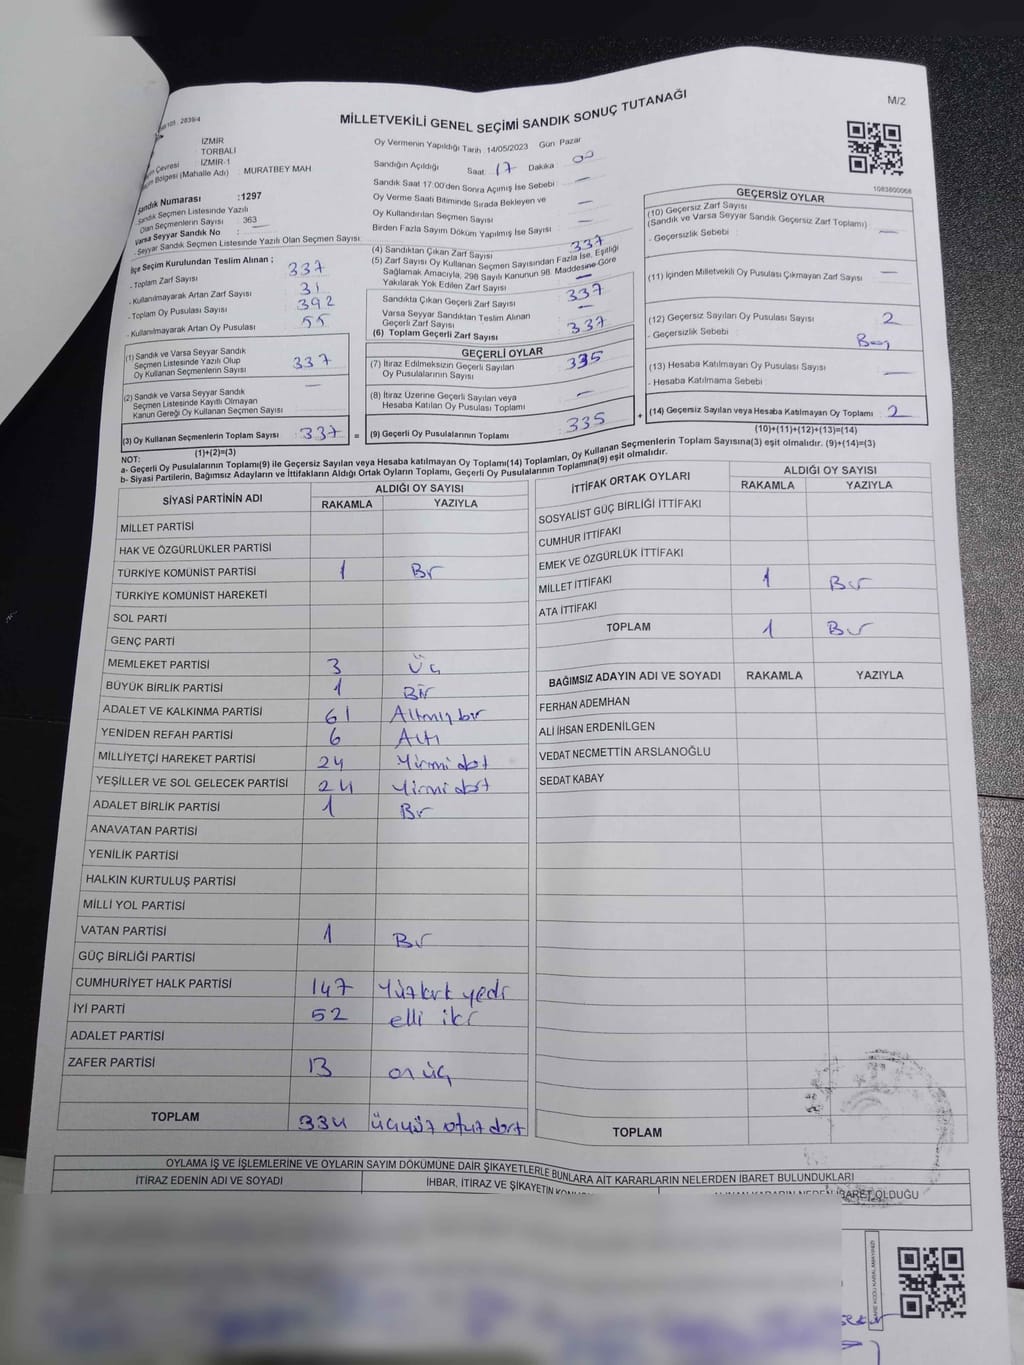 M/2
MİLLETVEKİLİ GENEL SEÇİMİ SANDIK SONUÇ TUTANAĞI
2839/4
İZMİR
TORBALI
Çevresi İZMİR-1
Bölgesi (Mahalle Adı) MURATBEY MAH
Sandık Numarası :1297
Sandık Seçmen Listesinde Yazılı
Olan Seçmenlerin Sayısı 363
Varsa Seyyar Sandık No :
Seyyar Sandık Seçmen Listesinde Yazılı Olan Seçmen Sayısı:
İlçe Seçim Kurulundan Teslim Alınan ;
- Toplam Zarf Sayısı 337
- Kullanılmayarak Artan Zarf Sayısı 31
- Toplam Oy Pusulası Sayısı 392
- Kullanılmayarak Artan Oy Pusulası 55
(1) Sandık ve Varsa Seyyar Sandık
Seçmen Listesinde Yazılı Olup
Oy Kullanan Seçmenlerin Sayısı 337
(2) Sandık ve Varsa Seyyar Sandık
Seçmen Listesinde Kayıtlı Olmayan
Kanun Gereği Oy Kullanan Seçmen Sayısı —
(3) Oy Kullanan Seçmenlerin Toplam Sayısı : 337 =
(1)+(2)=(3)
Oy Vermenin Yapıldığı Tarih 14/05/2023 Gün Pazar
Sandığın Açıldığı Saat: 17 Dakika : 00
Sandık Saat 17.00'den Sonra Açımış İse Sebebi : —
Oy Verme Saati Bitiminde Sırada Bekleyen ve
Oy Kullandırılan Seçmen Sayısı : —
Birden Fazla Sayım Döküm Yapılmış İse Sayısı : —
(4) Sandıktan Çıkan Zarf Sayısı : 337
(5) Zarf Sayısı Oy Kullanan Seçmen Sayısından Fazla İse, Eşitliği
Sağlamak Amacıyla, 298 Sayılı Kanunun 98. Maddesine Göre
Yakılarak Yok Edilen Zarf Sayısı —
Sandıkta Çıkan Geçerli Zarf Sayısı : 337
Varsa Seyyar Sandıktan Teslim Alınan
Geçerli Zarf Sayısı : —
(6) Toplam Geçerli Zarf Sayısı : 337
GEÇERLİ OYLAR
(7) İtiraz Edilmeksizin Geçerli Sayılan
Oy Pusulalarının Sayısı : 335
(8) İtiraz Üzerine Geçerli Sayılan veya
Hesaba Katılan Oy Pusulası Toplamı : —
(9) Geçerli Oy Pusulalarının Toplamı : 335 +
1083600068
GEÇERSİZ OYLAR
(10) Geçersiz Zarf Sayısı
(Sandık ve Varsa Seyyar Sandık Geçersiz Zarf Toplamı) : —
- Geçersizlik Sebebi :
(11) İçinden Milletvekili Oy Pusulası Çıkmayan Zarf Sayısı : —
(12) Geçersiz Sayılan Oy Pusulası Sayısı : 2
- Geçersizlik Sebebi :
(13) Hesaba Katılmayan Oy Pusulası Sayısı : —
- Hesaba Katılmama Sebebi :
(14) Geçersiz Sayılan veya Hesaba Katılmayan Oy Toplamı : 2
(10)+(11)+(12)+(13)=(14)
NOT:
a- Geçerli Oy Pusulalarının Toplamı(9) ile Geçersiz Sayılan veya Hesaba katılmayan Oy Toplamı(14) Toplamları, Oy Kullanan Seçmenlerin Toplam Sayısına(3) eşit olmalıdır. (9)+(14)=(3)
b- Siyasi Partilerin, Bağımsız Adayların ve İttifakların Aldığı Ortak Oyların Toplamı, Geçerli Oy Pusulalarının Toplamına(9) eşit olmalıdır.
SİYASİ PARTİNİN ADI ALDIĞI OY SAYISI
RAKAMLA YAZIYLA
MİLLET PARTİSİ
HAK VE ÖZGÜRLÜKLER PARTİSİ
TÜRKİYE KOMÜNİST PARTİSİ 1 Bir
TÜRKİYE KOMÜNİST HAREKETİ
SOL PARTİ
GENÇ PARTİ
MEMLEKET PARTİSİ 3 Üç
BÜYÜK BİRLİK PARTİSİ 1 Bir
ADALET VE KALKINMA PARTİSİ 61 Altmış bir
YENİDEN REFAH PARTİSİ 6 Altı
MİLLİYETÇİ HAREKET PARTİSİ 24 Yirmi dört
YEŞİLLER VE SOL GELECEK PARTİSİ 24 Yirmi dört
ADALET BİRLİK PARTİSİ 1 Bir
ANAVATAN PARTİSİ
YENİLİK PARTİSİ
HALKIN KURTULUŞ PARTİSİ
MİLLİ YOL PARTİSİ
VATAN PARTİSİ 1 Bir
GÜÇ BİRLİĞİ PARTİSİ
CUMHURİYET HALK PARTİSİ 147 Yüzkırk yedi
İYİ PARTİ 52 elli iki
ADALET PARTİSİ
ZAFER PARTİSİ 13 on üç
TOPLAM 334 üçyüz otuz dört
İTTİFAK ORTAK OYLARI ALDIĞI OY SAYISI
RAKAMLA YAZIYLA
SOSYALİST GÜÇ BİRLİĞİ İTTİFAKI
CUMHUR İTTİFAKI
EMEK VE ÖZGÜRLÜK İTTİFAKI
MİLLET İTTİFAKI 1 Bir
ATA İTTİFAKI
TOPLAM 1 Bir
BAĞIMSIZ ADAYIN ADI VE SOYADI RAKAMLA YAZIYLA
FERHAN ADEMHAN
ALİ İHSAN ERDENİLGEN
VEDAT NECMETTİN ARSLANOĞLU
SEDAT KABAY
TOPLAM
OYLAMA İŞ VE İŞLEMLERİNE VE OYLARIN SAYIM DÖKÜMÜNE DAİR ŞİKAYETLERLE BUNLARA AİT KARARLARIN NELERDEN İBARET BULUNDUKLARI
İTİRAZ EDENİN ADI VE SOYADI İHBAR, İTİRAZ VE ŞİKAYETİN İBARET OLDUĞU